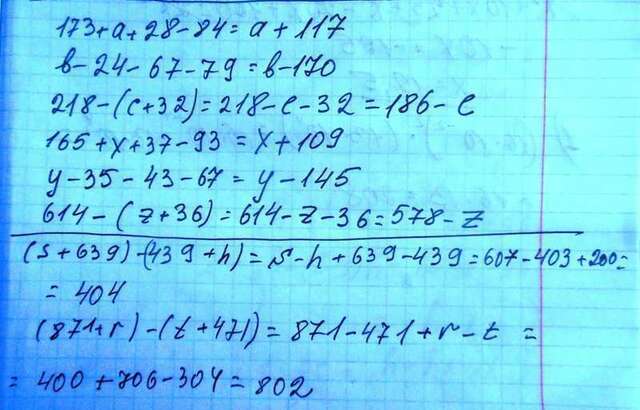 173+a+28-84=a+117
в-24-67-79=в-170
218-(c+32)=218-c-32=186-c
165+x+37-93=x+109
y-35-43-67=y-145
614-(z+36)=614-z-36=578-z
(s+639)-(439+h)=s-h+639-439=607-403+200=
=404
(871+r)-(t+471)=871-471+r-t=
=400+706-304=802